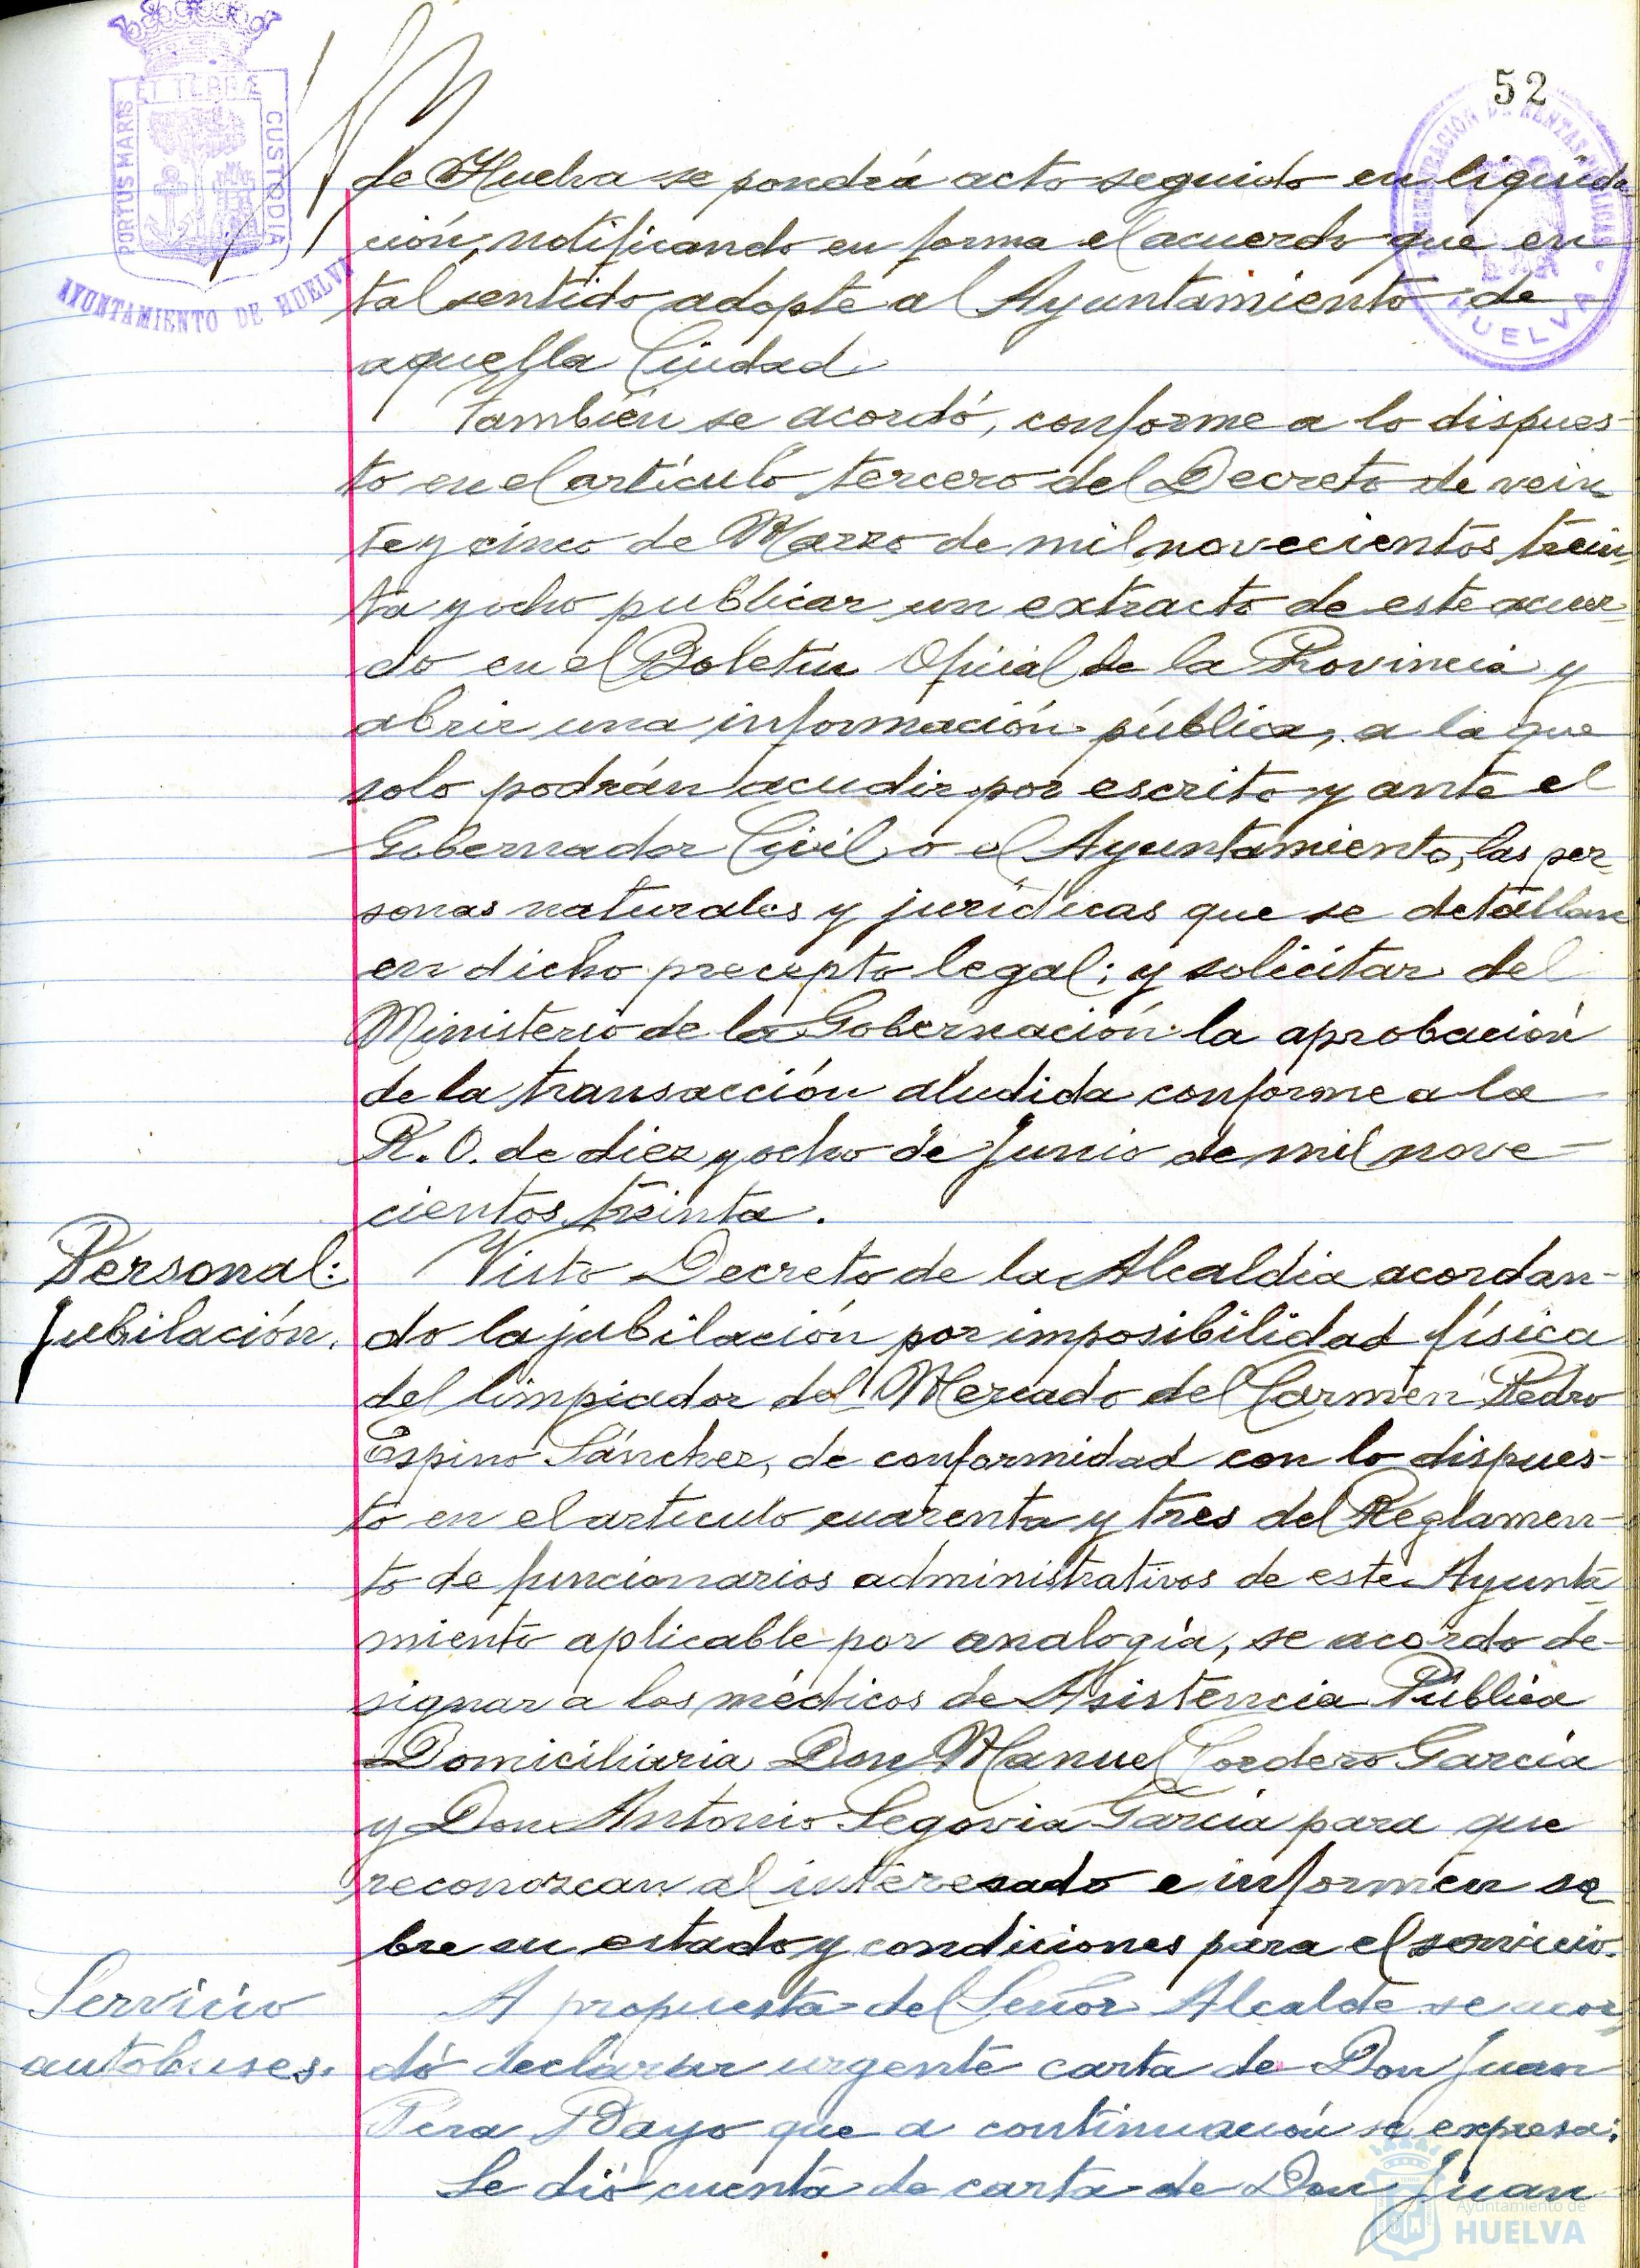 52
ET TERRÆ
PORTUS MARIS
CUSTODIA
AYUNTAMIENTO DE HUELVA
ADMINISTRACIÓN DE RENTAS PÚBLICAS
HUELVA
de Huelva se pondrá acto seguido en liquida
ción, notificando en forma el acuerdo que en
tal sentido adopte al Ayuntamiento de
aquella Ciudad.
También se acordó, conforme a lo dispues-
to en el artículo tercero del Decreto de vein
te y cinco de Marzo de mil novecientos trein
ta y ocho publicar un extracto de este acuer-
do en el Boletin Oficial de la Provincia y
abrir una información pública, a la que
solo podrán acudir por escrito y ante el
Gobernador Civil o el Ayuntamiento, las per
sonas naturales y jurídicas que se detallan
en dicho precepto legal; y solicitar del
Ministerio de la Gobernación la aprobación
de la transacción aludida conforme a la
R. O. de diez y ocho de Junio de mil nove-
cientos treinta.
Personal:
Jubilación.
Visto Decreto de la Alcaldia acordan-
do la jubilación por imposibilidad física
del limpiador del Mercado del Carmen Pedro
Espino Sánchez, de conformidad con lo dispues-
to en el articulo cuarenta y tres del Reglamen-
to de funcionarios administrativos de este Ayunta-
miento aplicable por analogía, se acordo de-
signar a los médicos de Asistencia Pública
Domiciliaria Don Manuel Cordero García
y Don Antonio Segovia García para que
reconozcan al interesado e informen so
bre su estado y condiciones para el servicio.
Servicio
autobuses.
A propuesta del Señor Alcalde se acor
dó declarar urgente carta de Don Juan
Pera Bayo que a continuación se expresa:
Se dió cuenta de carta de Don Juan
Ayuntamiento de
HUELVA